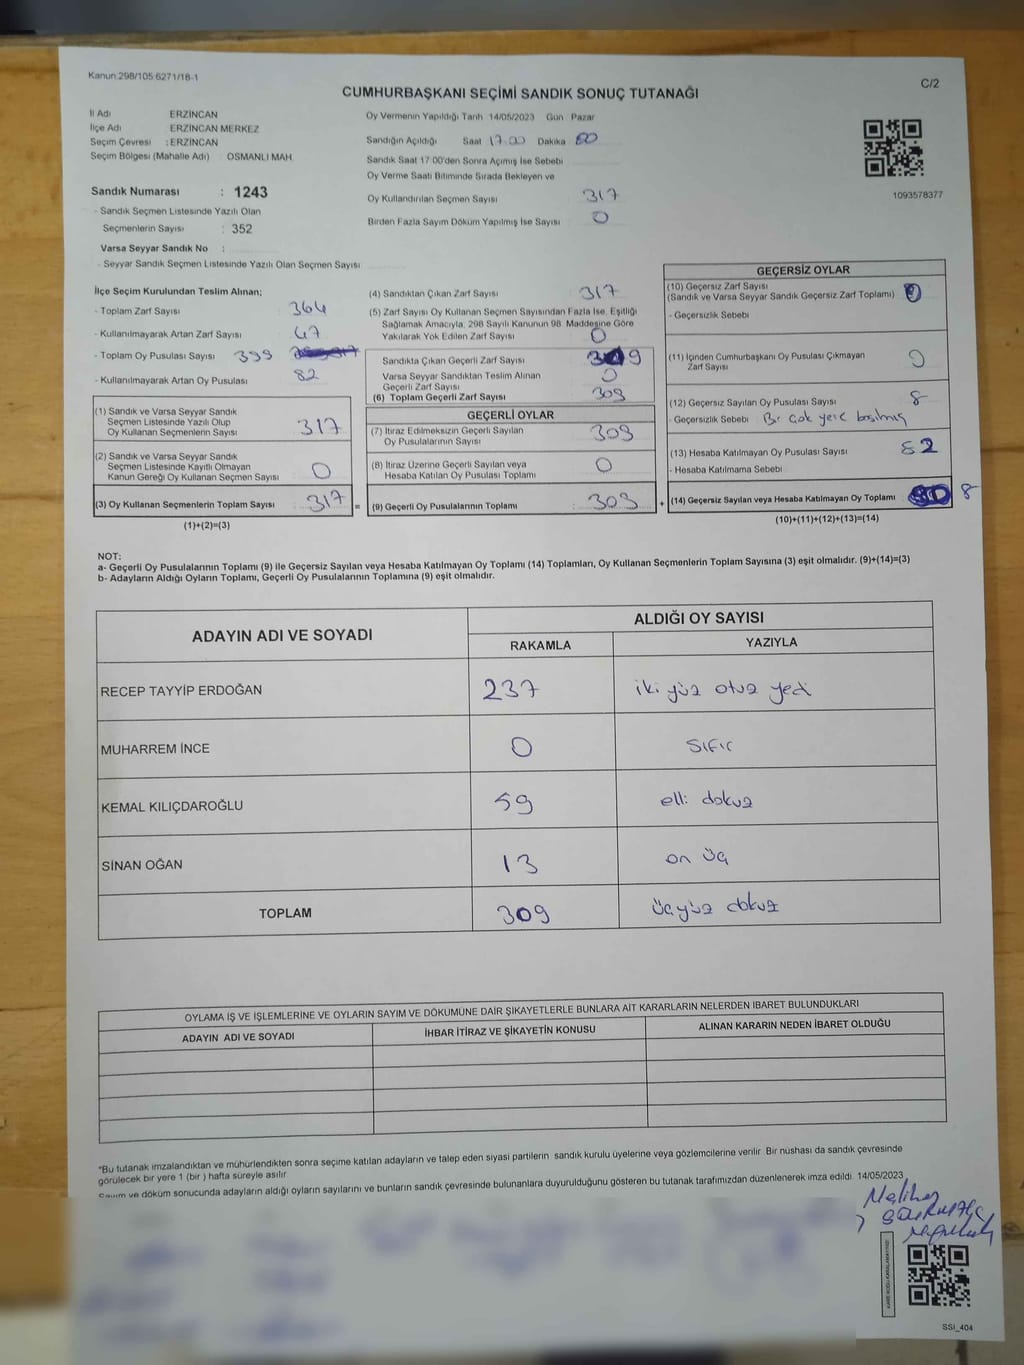 Kanun 298/105 6271/18-1
C/2
CUMHURBAŞKANI SEÇİMİ SANDIK SONUÇ TUTANAĞI
İl Adı ERZİNCAN
İlçe Adı ERZİNCAN MERKEZ
Seçim Çevresi : ERZİNCAN
Seçim Bölgesi (Mahalle Adı) OSMANLI MAH.
Sandık Numarası : 1243
- Sandık Seçmen Listesinde Yazılı Olan
Seçmenlerin Sayısı : 352
Varsa Seyyar Sandık No :
- Seyyar Sandık Seçmen Listesinde Yazılı Olan Seçmen Sayısı
Oy Vermenin Yapıldığı Tarih 14/05/2023 Gün Pazar
Sandığın Açıldığı Saat 17.00 Dakika 00
Sandık Saat 17 00'den Sonra Açılmış İse Sebebi
Oy Verme Saati Bitiminde Sırada Bekleyen ve
Oy Kullandırılan Seçmen Sayısı 317
Birden Fazla Sayım Döküm Yapılmış İse Sayısı 0
1093578377
İlçe Seçim Kurulundan Teslim Alınan;
- Toplam Zarf Sayısı 364
- Kullanılmayarak Artan Zarf Sayısı 47
- Toplam Oy Pusulası Sayısı 399
- Kullanılmayarak Artan Oy Pusulası 82
(1) Sandık ve Varsa Seyyar Sandık
Seçmen Listesinde Yazılı Olup
Oy Kullanan Seçmenlerin Sayısı 317
(2) Sandık ve Varsa Seyyar Sandık
Seçmen Listesinde Kayıtlı Olmayan
Kanun Gereği Oy Kullanan Seçmen Sayısı 0
(3) Oy Kullanan Seçmenlerin Toplam Sayısı 317 =
(1)+(2)=(3)
(4) Sandıktan Çıkan Zarf Sayısı 317
(5) Zarf Sayısı Oy Kullanan Seçmen Sayısından Fazla İse, Eşitliği
Sağlamak Amacıyla, 298 Sayılı Kanunun 98. Maddesine Göre
Yakılarak Yok Edilen Zarf Sayısı 0
Sandıkta Çıkan Geçerli Zarf Sayısı 309
Varsa Seyyar Sandıktan Teslim Alınan
Geçerli Zarf Sayısı 0
(6) Toplam Geçerli Zarf Sayısı 309
GEÇERLİ OYLAR
(7) İtiraz Edilmeksizin Geçerli Sayılan
Oy Pusulalarının Sayısı 309
(8) İtiraz Üzerine Geçerli Sayılan veya
Hesaba Katılan Oy Pusulası Toplamı 0
(9) Geçerli Oy Pusulalarının Toplamı 309 +
GEÇERSİZ OYLAR
(10) Geçersiz Zarf Sayısı
(Sandık ve Varsa Seyyar Sandık Geçersiz Zarf Toplamı) 0
- Geçersizlik Sebebi
(11) İçinden Cumhurbaşkanı Oy Pusulası Çıkmayan
Zarf Sayısı 0
(12) Geçersiz Sayılan Oy Pusulası Sayısı 8
- Geçersizlik Sebebi Bir çok yere basılmış
(13) Hesaba Katılmayan Oy Pusulası Sayısı 82
- Hesaba Katılmama Sebebi
(14) Geçersiz Sayılan veya Hesaba Katılmayan Oy Toplamı 8
(10)+(11)+(12)+(13)=(14)
NOT:
a- Geçerli Oy Pusulalarının Toplamı (9) ile Geçersiz Sayılan veya Hesaba Katılmayan Oy Toplamı (14) Toplamları, Oy Kullanan Seçmenlerin Toplam Sayısına (3) eşit olmalıdır. (9)+(14)=(3)
b- Adayların Aldığı Oyların Toplamı, Geçerli Oy Pusulalarının Toplamına (9) eşit olmalıdır.
ADAYIN ADI VE SOYADI
ALDIĞI OY SAYISI
RAKAMLA YAZIYLA
RECEP TAYYİP ERDOĞAN 237 iki yüz otuz yedi
MUHARREM İNCE 0 sıfır
KEMAL KILIÇDAROĞLU 59 elli dokuz
SİNAN OĞAN 13 on üç
TOPLAM 309 üçyüz dokuz
OYLAMA İŞ VE İŞLEMLERİNE VE OYLARIN SAYIM VE DÖKÜMÜNE DAİR ŞİKAYETLERLE BUNLARA AİT KARARLARIN NELERDEN İBARET BULUNDUKLARI
ADAYIN ADI VE SOYADI İHBAR İTİRAZ VE ŞİKAYETİN KONUSU ALINAN KARARIN NEDEN İBARET OLDUĞU
*Bu tutanak imzalandıktan ve mühürlendikten sonra seçime katılan adayların ve talep eden siyasi partilerin sandık kurulu üyelerine veya gözlemcilerine verilir Bir nüshası da sandık çevresinde
görülecek bir yere 1 (bir ) hafta süreyle asılır
Sayım ve döküm sonucunda adayların aldığı oyların sayılarını ve bunların sandık çevresinde bulunanlara duyurulduğunu gösteren bu tutanak tarafımızdan düzenlenerek imza edildi. 14/05/2023
SSI_404